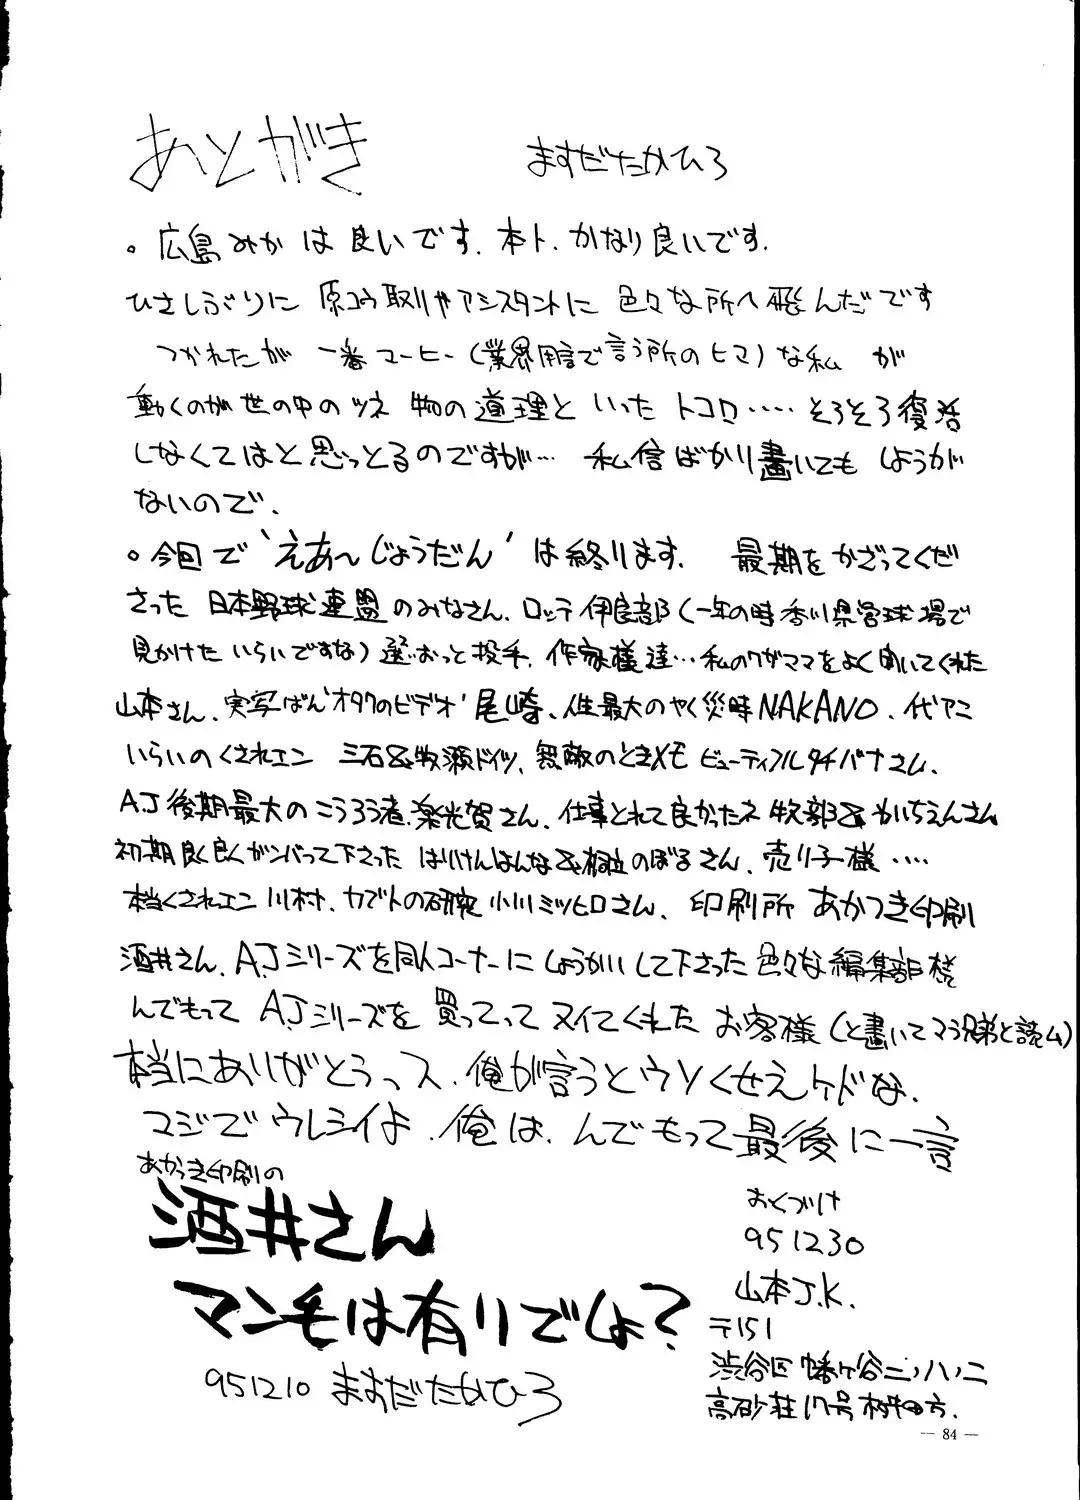 あとがき
ますだたかひろ
。広島みかは良いです.本ト.かなり良いです.
ひさしぶりに 原コウ取りやアシスタントに 色々な所へ飛んだです
つかれたが 一番マーヒー(業界用言で言う所のヒマ)な私 が
動くのが世の中のツネ 物の道理といったトコロ····そろそろ復活
しなくてはと思っとるのですが… 私信ばかり書いてもしようが
ないので.
。今回で'えあ〜じょうだん'は終ります. 最期をかざってくだ
さった 日本野球連盟のみなさん.ロッテ伊良部(一年の時香川県営球場で
見かけたいらいですな)選.おっと投手.作家様達…私のワガママをよく聞いてくれた
山本さん.実写ばん'オタクのビデオ'尾崎.人生最大のやく災時NAKANO.代アニ
いらいのくされエン 三石&牧瀬ドイツ.無敵のときメモ ビューティフルタチバナさム.
A.J後期最大のこうろう者.楽光賀さん.仕事とれて良かったネ 牧部&かいちえんさん
初期良く良くガンバって下さった はりけんはんな&桐立のぼるさん.売り子様····
本当くされエン 川村.カブトの研究 小川ミツヒロさん. 印刷所 あかつき印刷
酒井さん.A.Jシリーズを同人コーナーにしょうかいして下さった色々な編集部様
んでもって A.Jシリーズを 買ってって ヌイてくれた お客様(と書いてマラ兄弟と読ム)
本当にありがとうっス.俺が言うとウソくせえケドな.
マジでウレシイよ.俺は.んでもって最後に一言
あかつき印刷の
酒井さん
マン毛は有りでしょ?
951210 ますだたかひろ
おくづけ
951230
山本J.K.
〒151
渋谷区幡ヶ谷二ノ八ノ二
高砂荘17号 方.
— 84 —